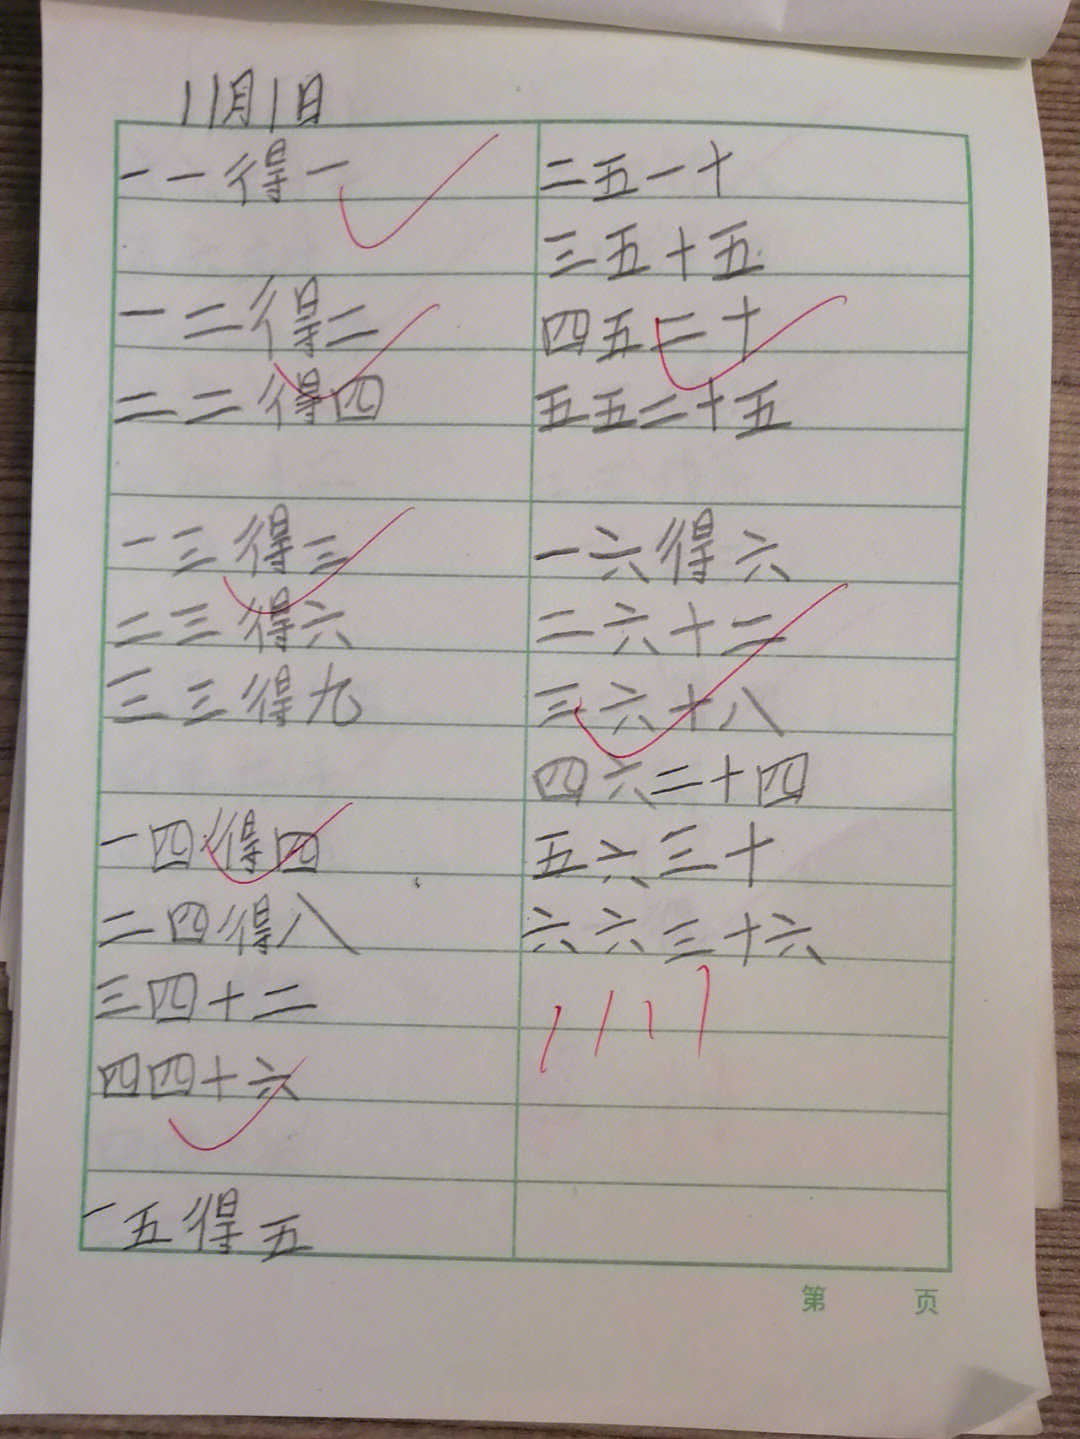 11月1日
一一得一
一二得二
二二得四
一三得三
二三得六
三三得九
一四得四
二四得八
三四十二
四四十六
一五得五
二五一十
三五十五
四五二十
五五二十五
一六得六
二六十二
三六十八
四六二十四
五六三十
六六三十六
第 页